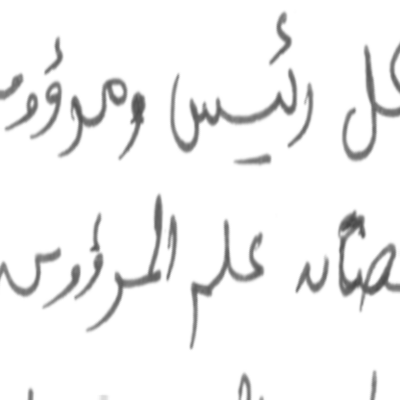 كل رئيس ومرؤوس
علم المرؤوس